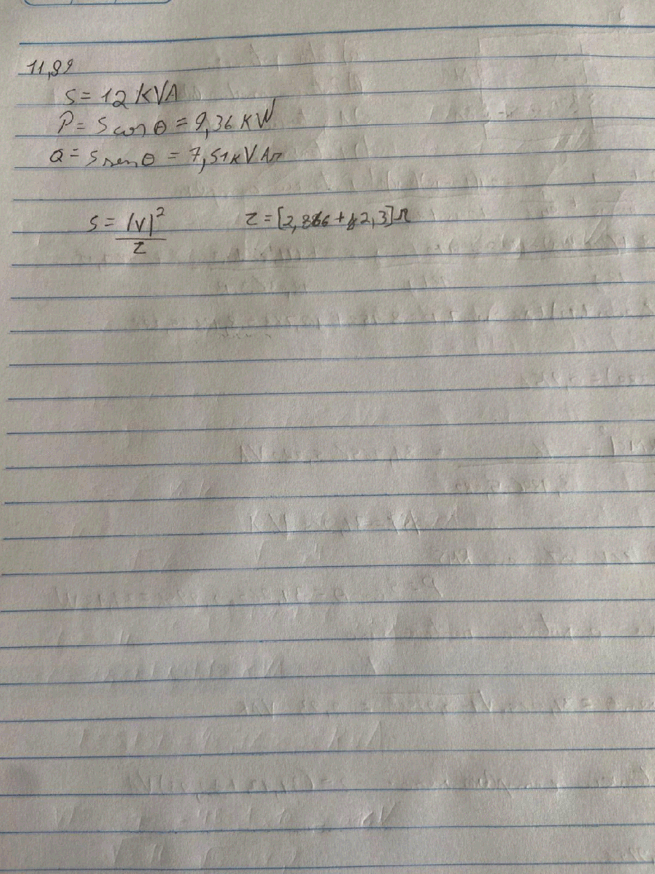 11,89
S = 12 KVA
P = S cos θ = 9,36 KW
Q = S sen θ = 7,51 KVAr
S = |V|² / Z    Z = [2,866 + j2,3] Ω